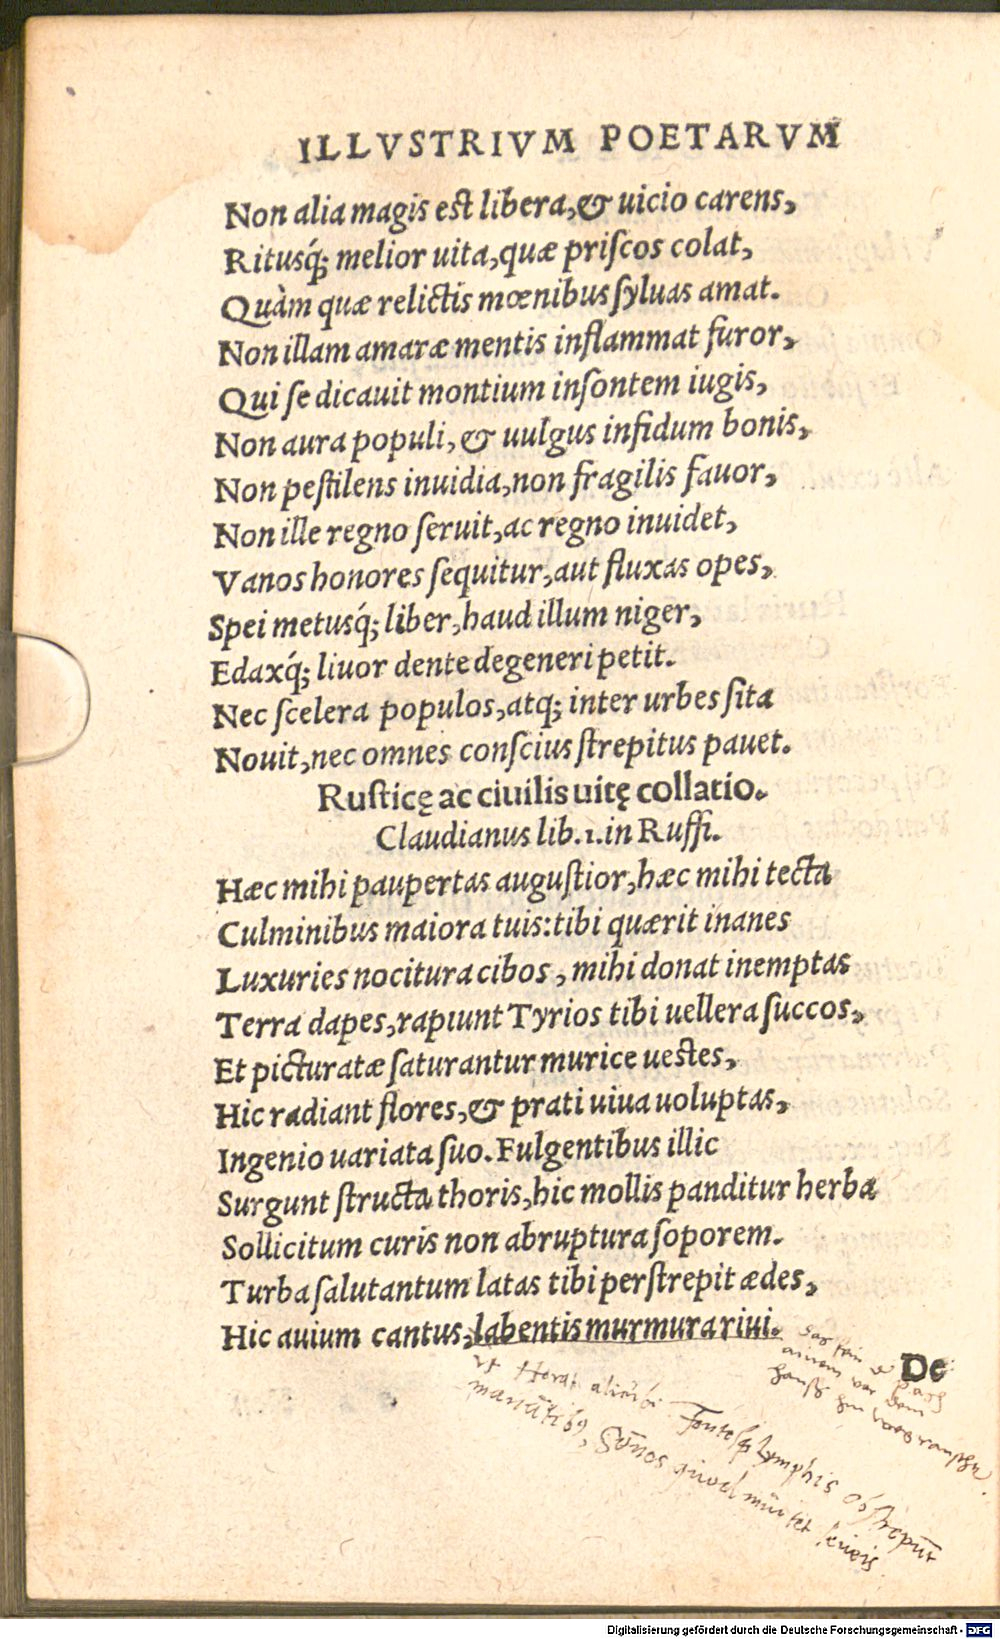 ILLVSTRIVM POETARVM
Non alia magis est libera, & uicio carens,
Ritusq́; melior uita, quæ priſcos colat,
Quàm quæ relictis mœnibus ſyluas amat.
Non illam amaræ mentis inflammat furor,
Qui ſe dicauit montium inſontem iugis,
Non aura populi, & uulgus infidum bonis,
Non peſtilens inuidia, non fragilis fauor,
Non ille regno ſeruit, ac regno inuidet,
Vanos honores ſequitur, aut fluxas opes,
Spei metusq́; liber, haud illum niger,
Edaxq́; liuor dente degeneri petit.
Nec ſcelera populos, atq; inter urbes ſita
Nouit, nec omnes conſcius ſtrepitus pauet.
Ruſticę ac ciuilis uitę collatio.
Claudianus lib. 1. in Ruffi.
Hæc mihi paupertas auguſtior, hæc mihi tecta
Culminibus maiora tuis: tibi quærit inanes
Luxuries nocitura cibos, mihi donat inemptas
Terra dapes, rapiunt Tyrios tibi uellera ſuccos,
Et picturatæ ſaturantur murice ueſtes,
Hic radiant flores, & prati uiua uoluptas,
Ingenio uariata ſuo. Fulgentibus illic
Surgunt ſtructa thoris, hic mollis panditur herba
Sollicitum curis non abruptura ſoporem.
Turba ſalutantum latas tibi perſtrepit ædes,
Hic auium cantus, labentis murmura riui.
De
das ein bach
einem vor dem
hauſß hin
ut Horat alicubi Fontesq; lymphis obſtrepūt
manātibq, Sōnos quod inuitet leueis
Digitalisierung gefördert durch die Deutsche Forschungsgemeinschaft - DFG